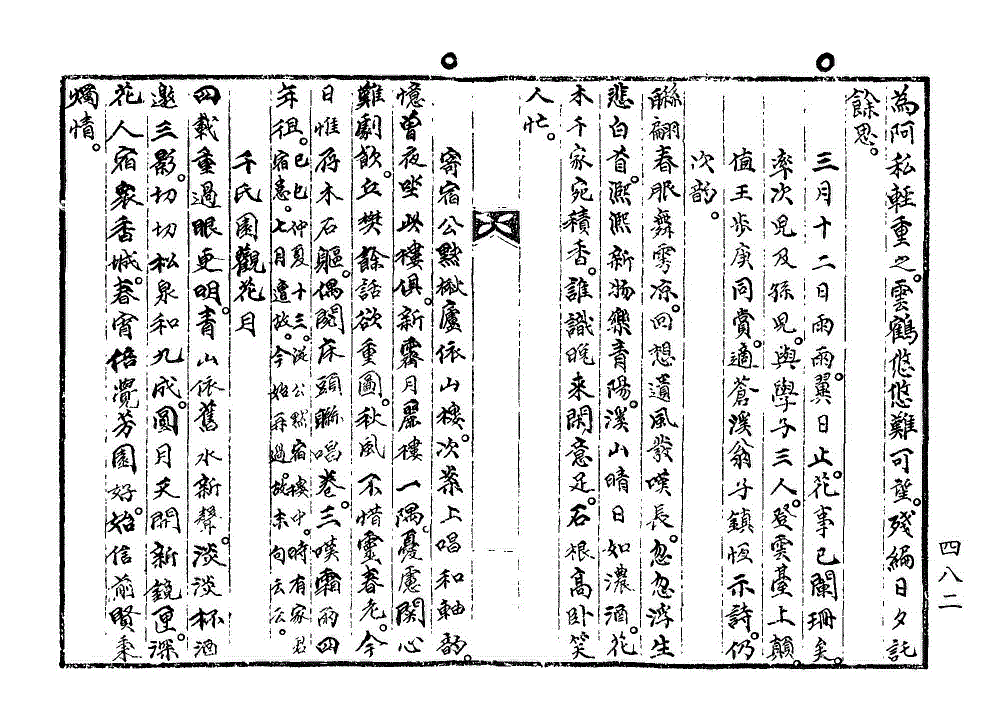 為阿私輕重之。雲鶴悠悠難可望。殘編日夕託
餘思。
三月十二日雨雨翼日止。花事已闌珊矣。
率次兒及孫兒。與學子三人。登雲臺上顛。
值王步庚同賞。適蒼溪翁子鎮恆示詩。仍
次韵。
聯翩春服舞雩凉。回想遺風發嘆長。忽忽浮生
悲白首。熙熙新物樂青陽。溪山晴日如濃酒。花
木千家宛積香。誰識晚來閑意足。石根高卧笑
人忙。
寄宿公黙楸廬依山樓。次案上唱和軸韵。
憶曾夜坐此樓俱。新霽月麗樓一隅。憂慮関心
難劇飲。丘樊餘話欲重圖。秋風不惜靈春老。今
日惟存木石軀。偶閱床頭聯唱卷。三嘆霜雨四
年徂。己巳仲夏十三。從公黙宿樓中。時有家君
宿恙。七月遭故。今始再過。故末句云云。
千氏園觀花月
四載重過眼更明。青山依舊水新聲。淡淡杯酒
邀三影。切切松泉和九成。圓月天開新鏡匣。深
花人宿衆香城。春宵倍覺芳園好。始信前賢秉
燭情。
四八二